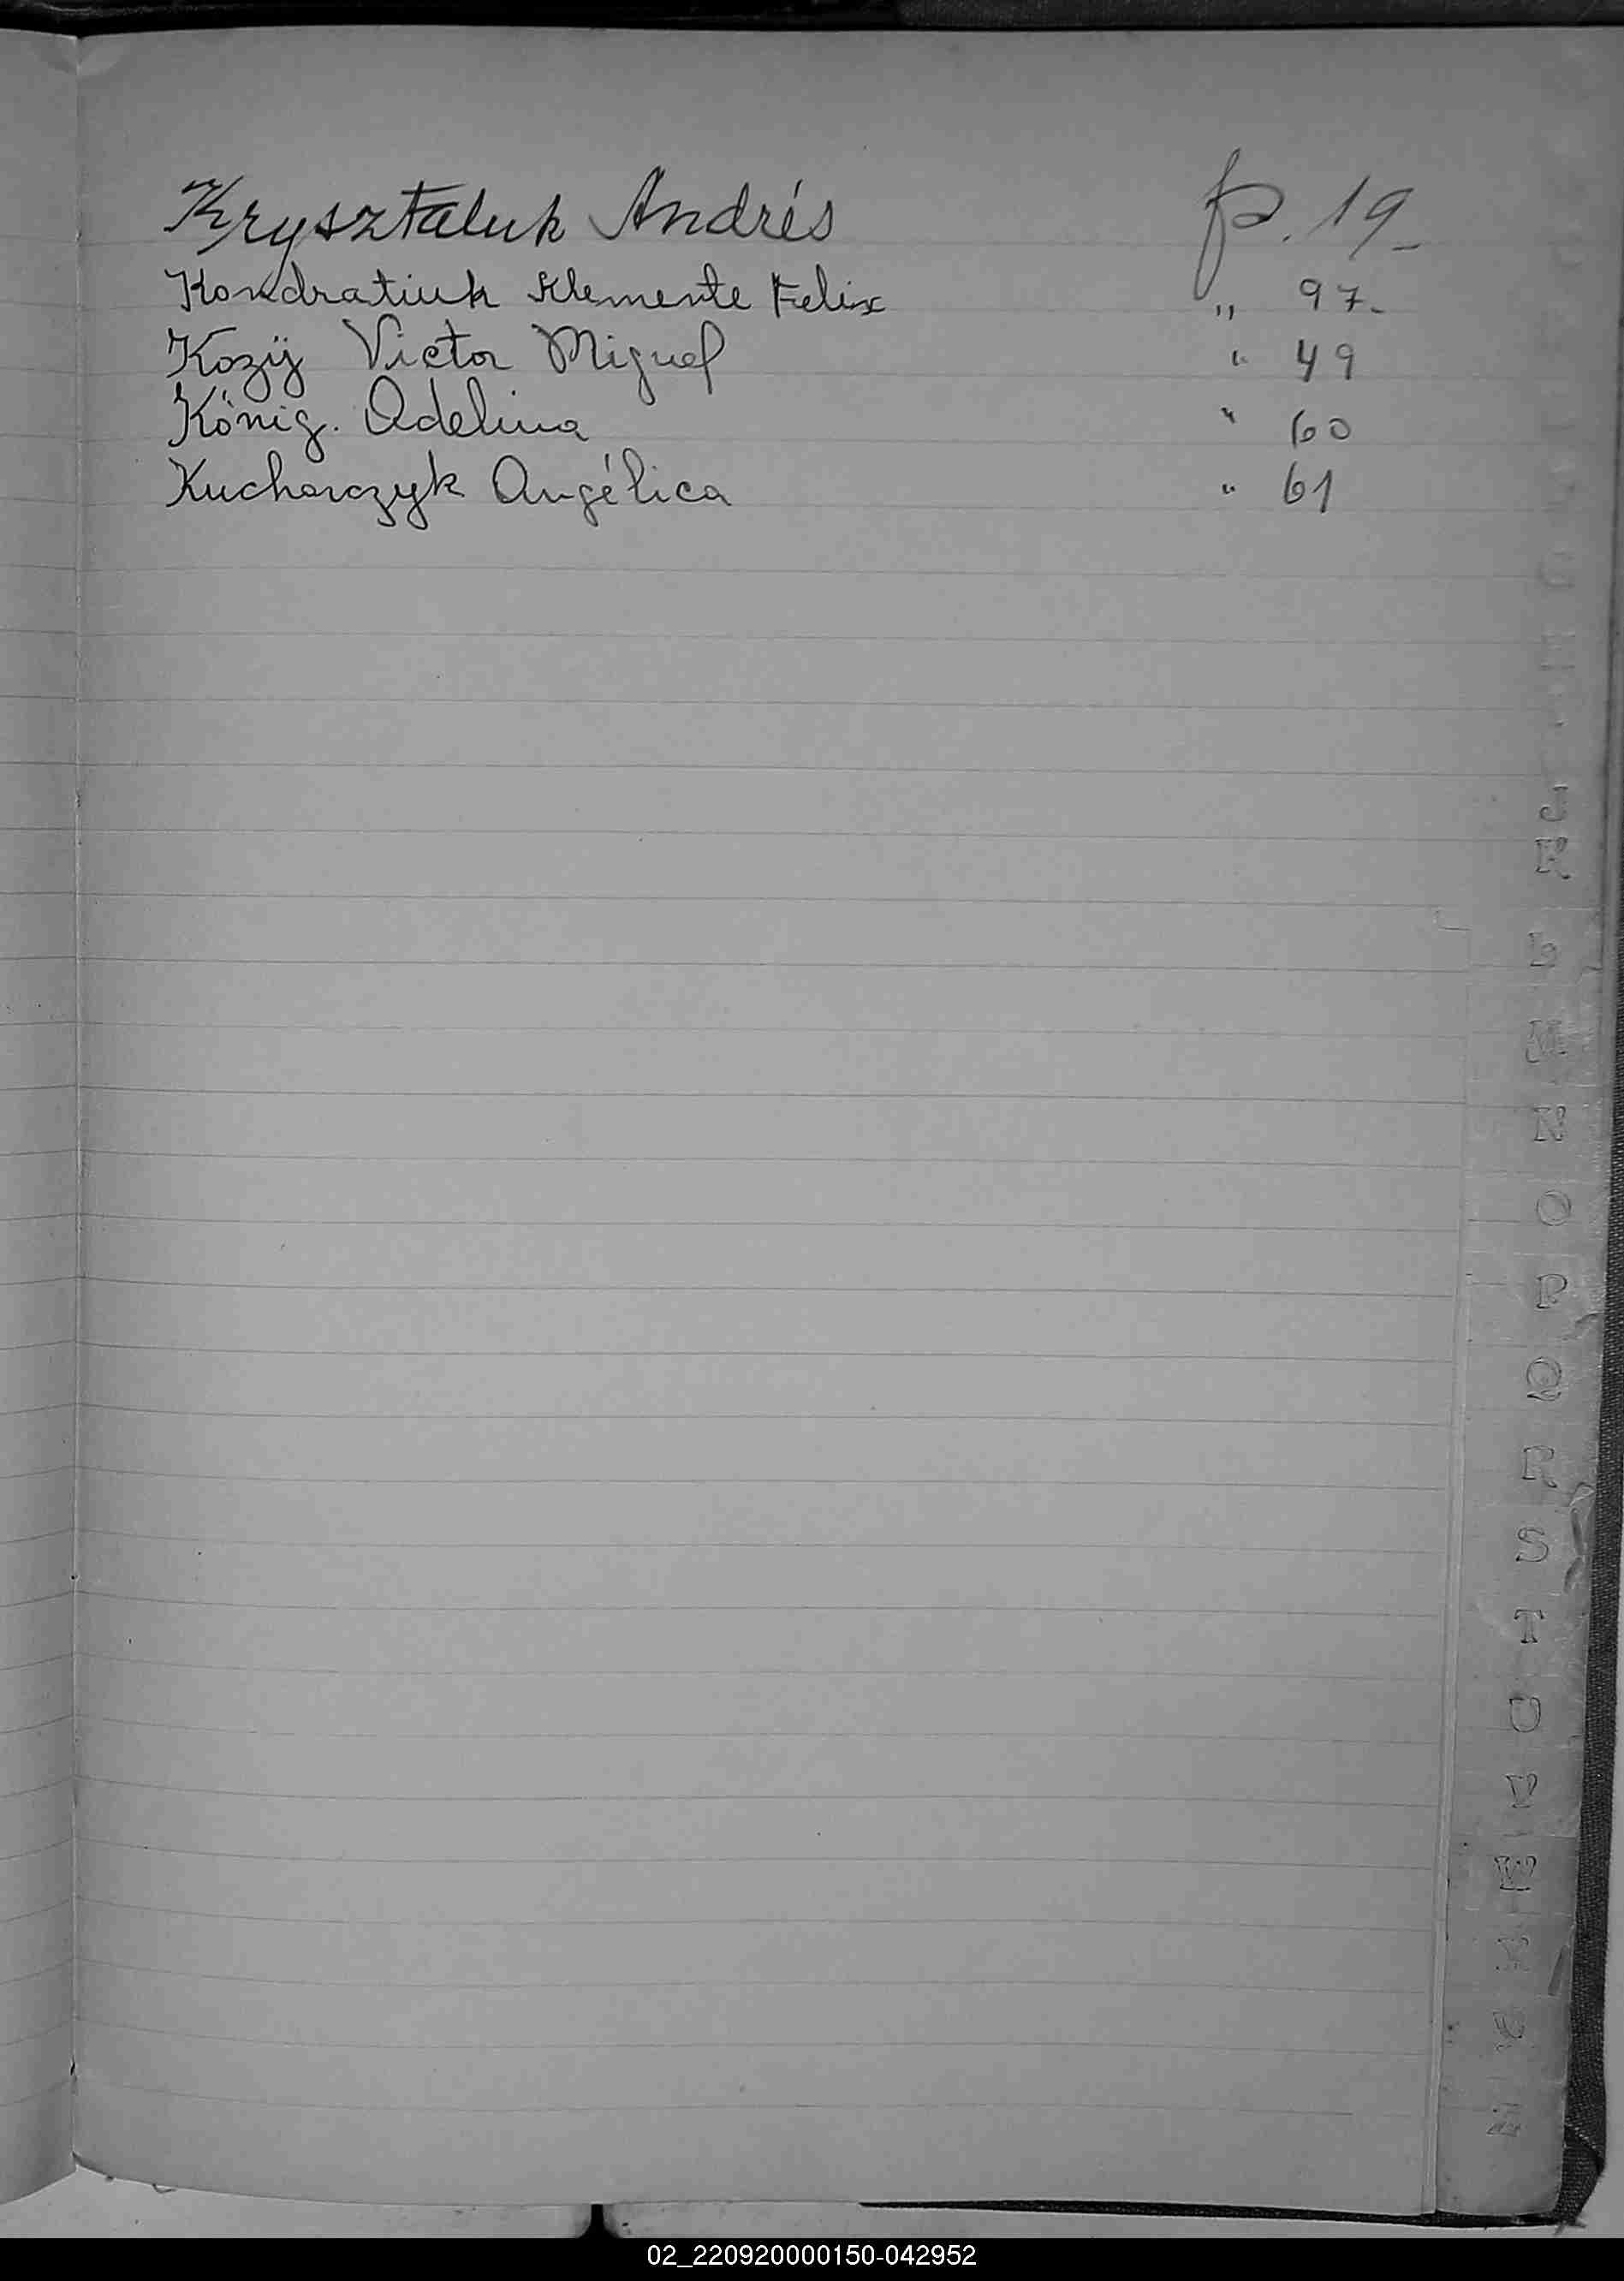 Krysztaluk Andrés p. 19-
Kondratiuk Klemente Felix " 97-
Kozij Victor Miguel " 49
König. Adelina " 60
Kucharczyk Angélica " 61
J
K
L
M
N
O
P
Q
R
S
T
U
V
W
X
Y
Z
02_220920000150-042952